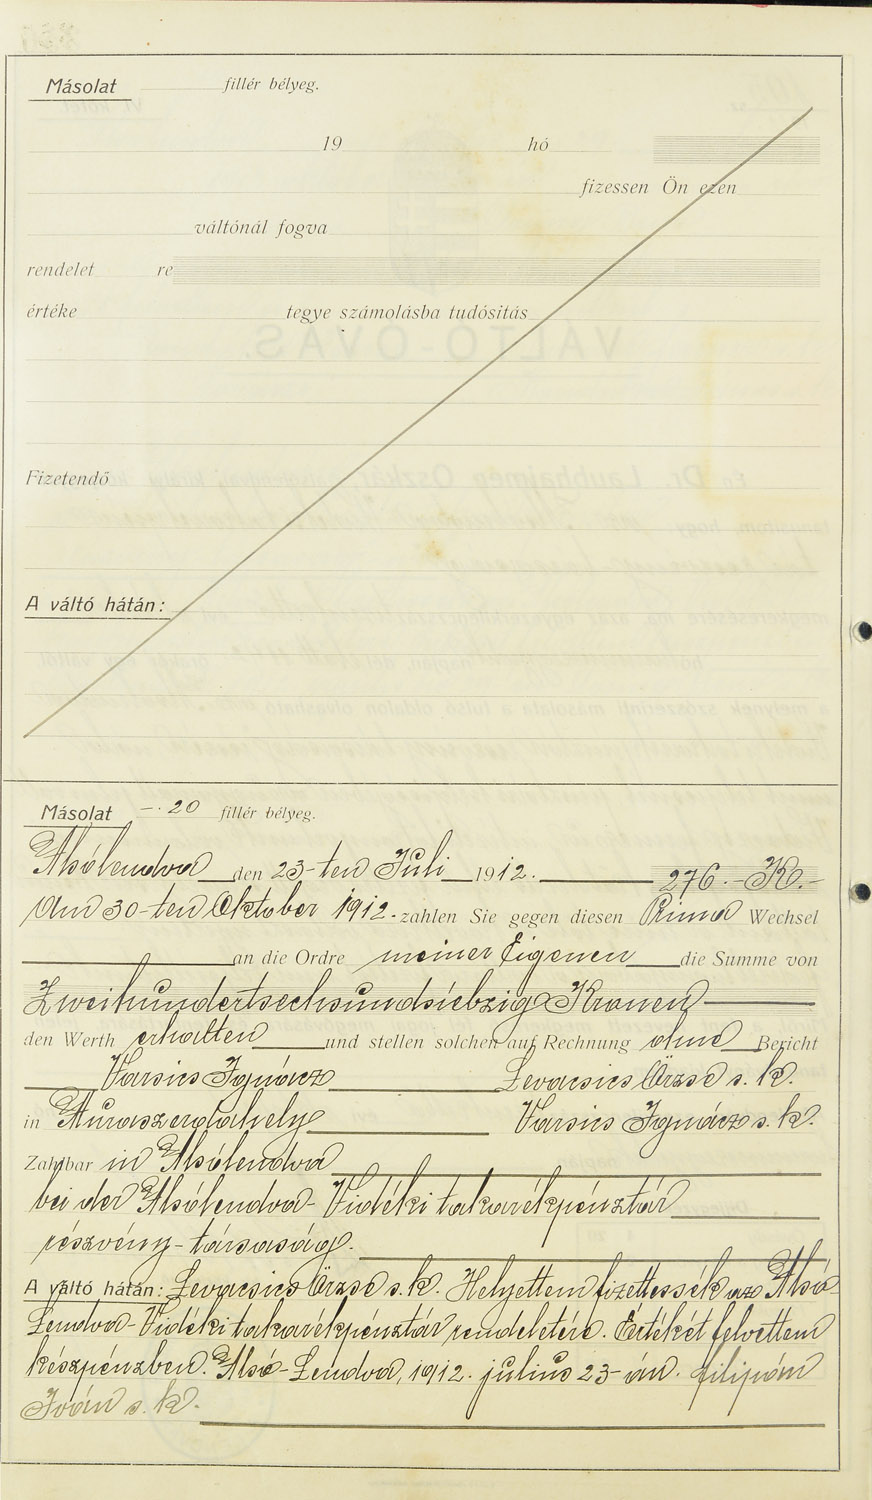 Másolat fillér bélyeg.
19 hó
fizessen Ön ezen
váltónál fogva
rendelet re
értéke tegye számolásba tudósitás
Fizetendő
A váltó hátán:
Másolat —·20 fillér bélyeg.
Alsólendva den 23-ten Juli 1912. 276.-K.-
Am 30-ten Oktober 1912. zahlen Sie gegen diesen Prima Wechsel
an die Ordre meiner Eigenen die Summe von
Zweihundertsechsundsiebzig Kronen
den Werth erhalten und stellen solchen auf Rechnung ohne Bericht
Varsics Ignácz Levacsics Örzse s. k.
in Muraszerdahely Varsics Ignácz s. k.
Zahlbar in Alsólendva
bei der Alsólendva-Vidéki takarékpénztár
részvény-társaság.
A váltó hátán: Levacsics Örzse s. k. Helyettem fizettessék az Alsó-
Lendva-Vidéki takarékpénztár rendeletére. Értékét felvettem
készpénzben. Alsó-Lendva, 1912. julius 23-án. Filipán
Iván s. k.